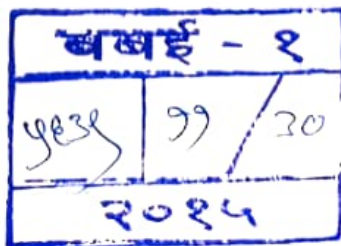 बबई - १
५६३५ ११ / ३०
२०१५